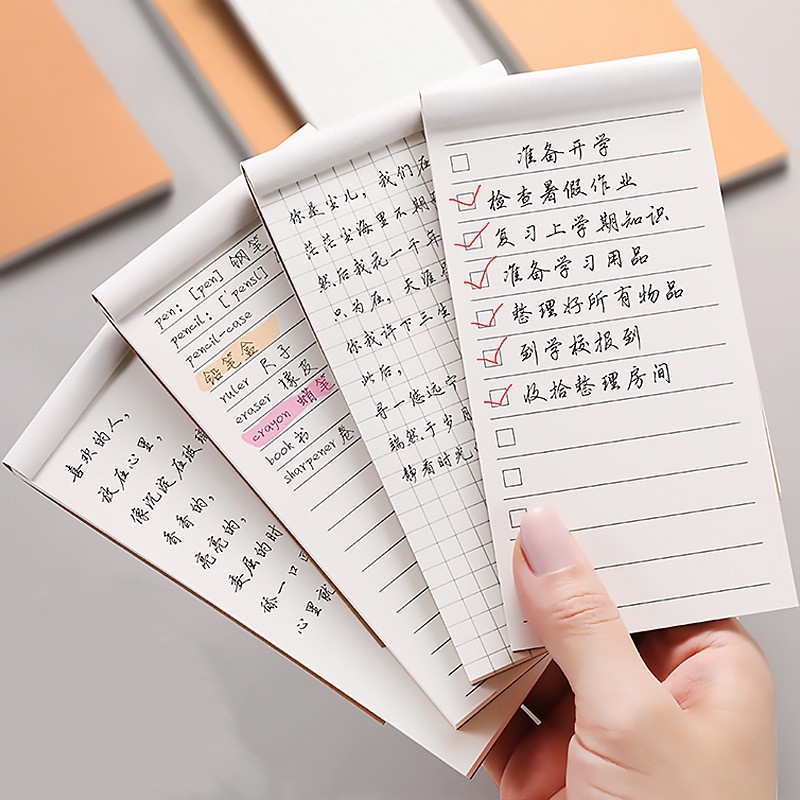 喜欢的人,
放在心里,
像沉淀在玻璃
香香的,
亮亮的,
委屈的时
舔一口
心里就
pen: [pen] 钢笔
pencil:
pencil-case
铅笔盒
ruler 尺子
eraser 橡皮
crayon 蜡笔
book 书
sharpener 卷
你是尘儿,我们在
茫茫尘海里不期
然后我花一千年
只为在,天涯
你我许下三生
此后,
寻一悠远宁
端然于岁月
静看时光
准备开学
检查暑假作业
复习上学期知识
准备学习用品
整理好所有物品
到学校报到
收拾整理房间